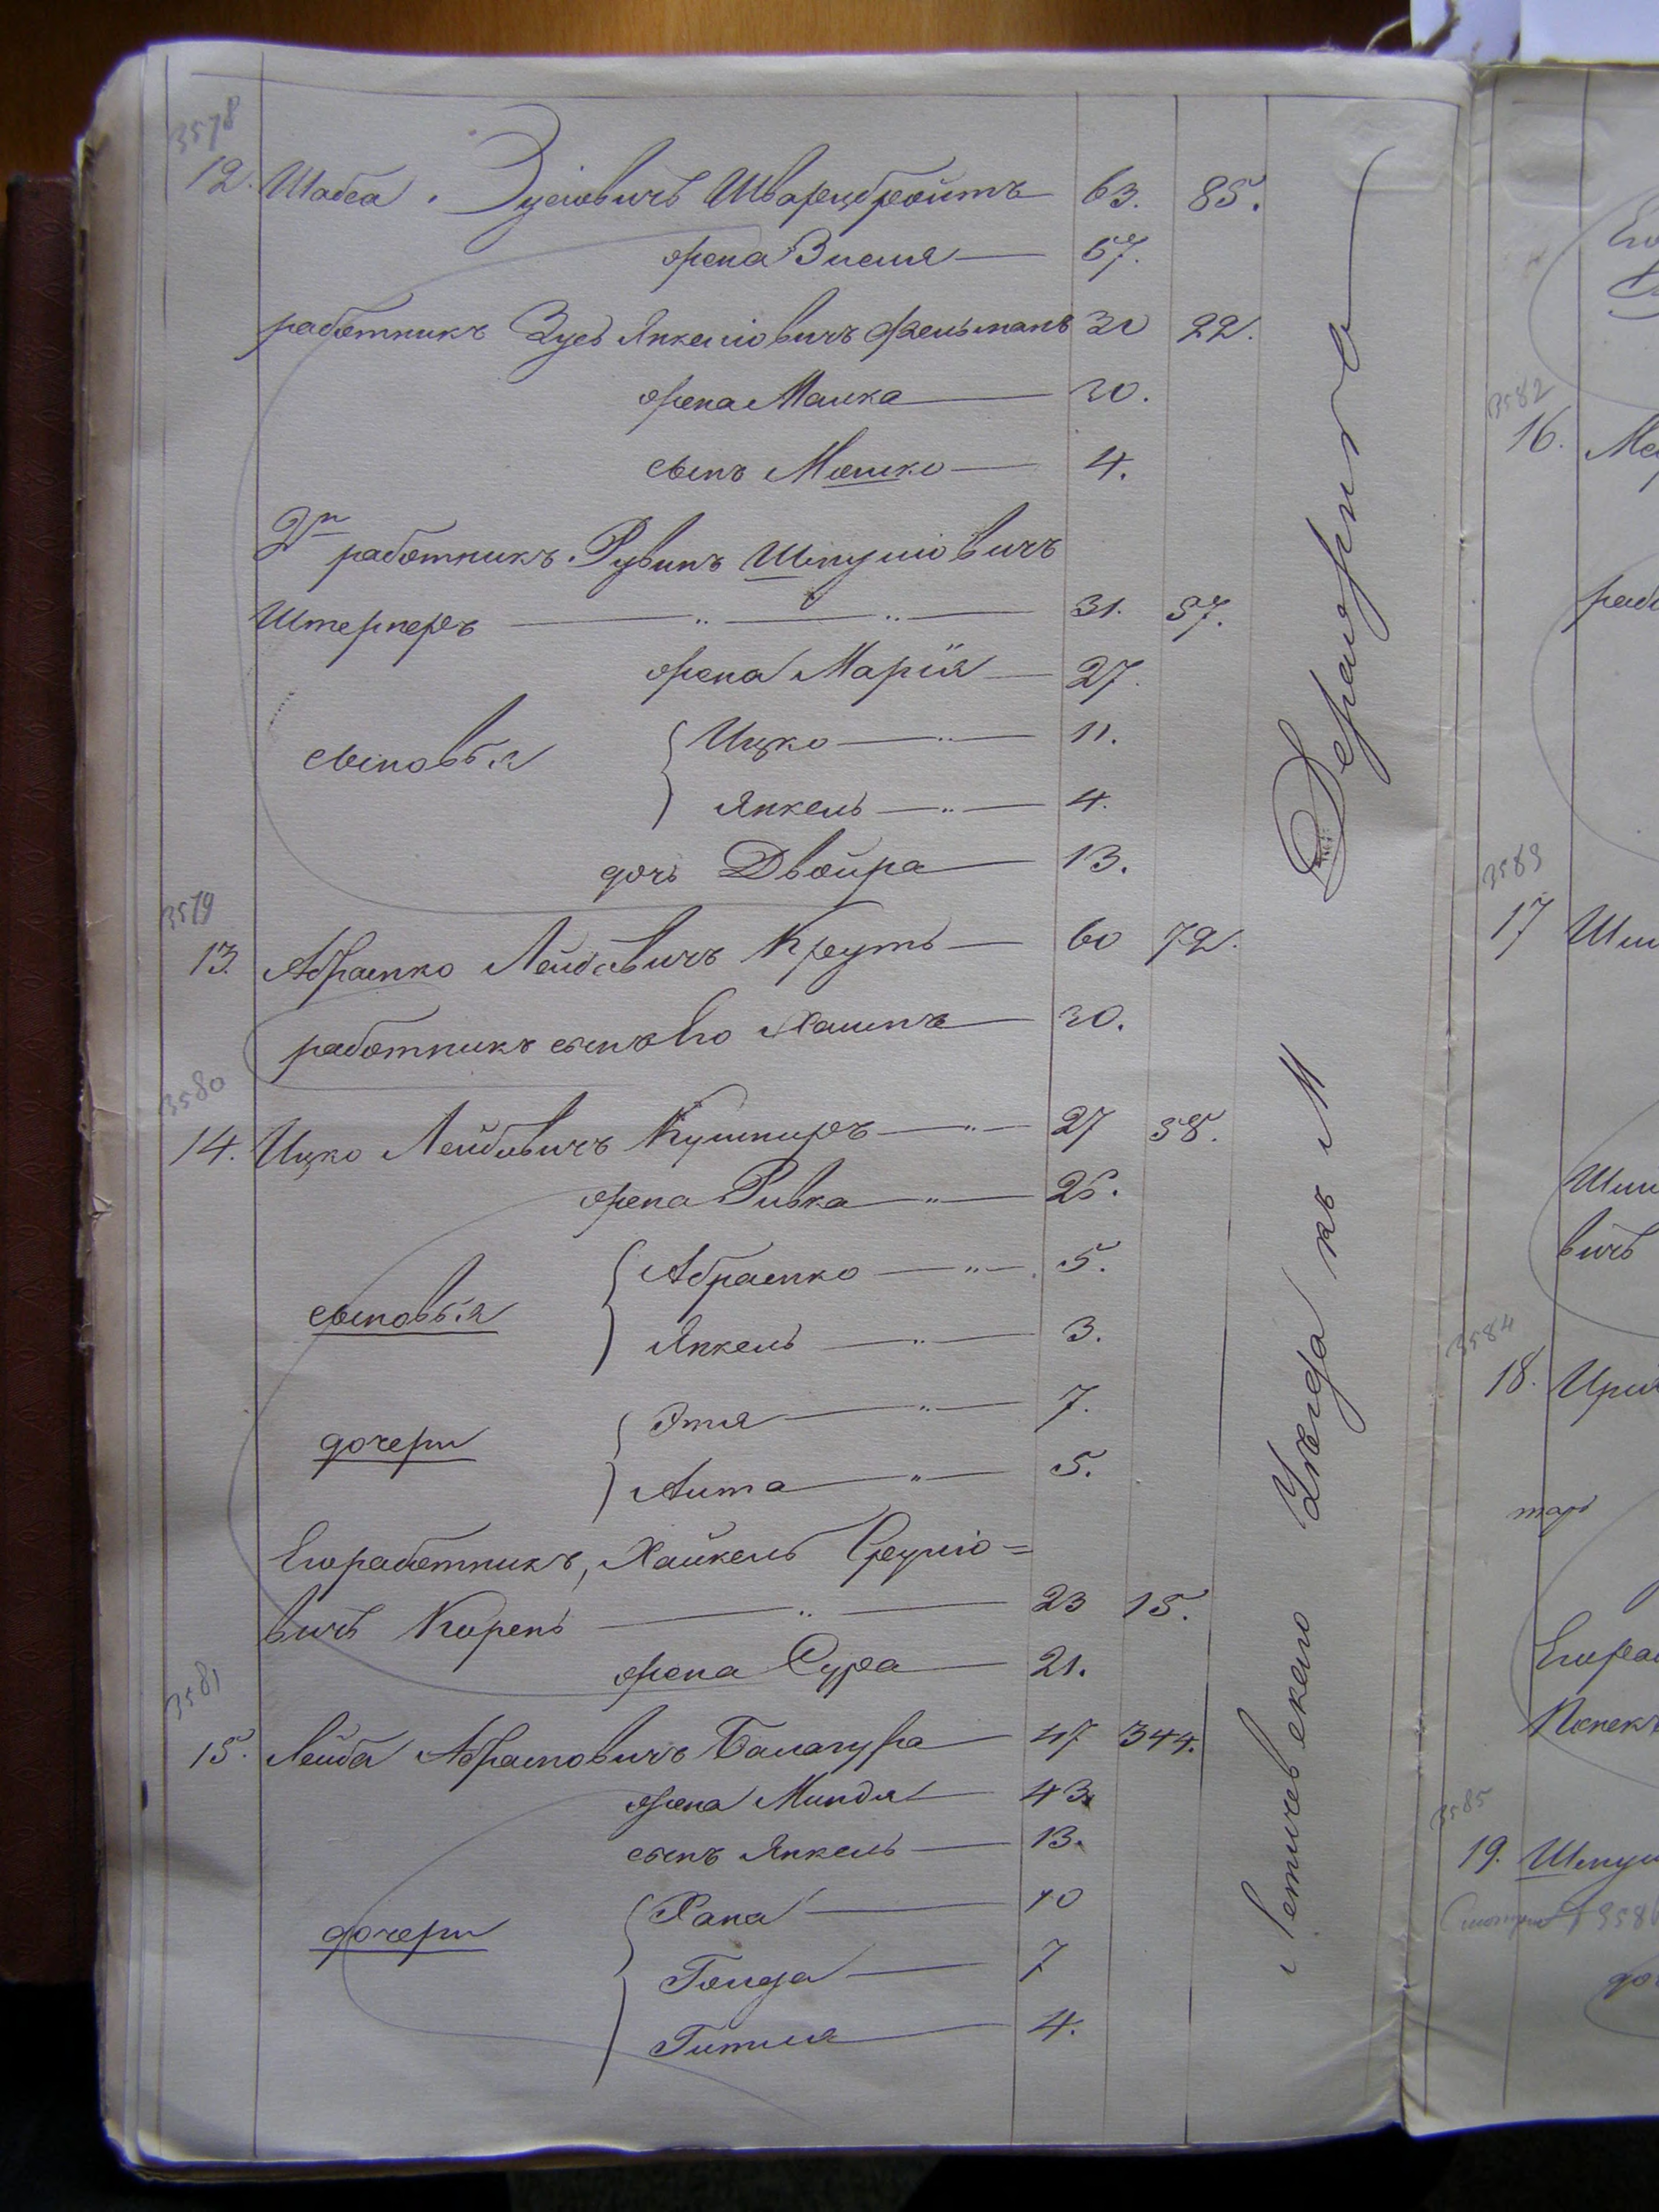 3578
12. Шабса Зусіовичъ Шварцбройтъ 63. 85.
жена Зисля 67.
работникъ Зусь Янкеліовичъ Фельманъ 30 22.
жена Малка 30.
сынъ Мошко 4.
2й
работникъ Рувинъ Шмуліовичъ
Штернеръ 31. 57.
жена Марія 27.
сыновья Ицко 11.
Янкель 4.
дочь Двойра 13.
3579
13. Абрамко Лейбовичъ Крутъ 60 72.
работникъ сынъ его Хаимъ 30.
3580
14. Ицко Лейбовичъ Кушниръ 27 58.
жена Ривка 25.
сыновья Абрамко 5.
Янкель 3.
дочери Этля 7.
Аита 5.
Его работникъ, Хайкель Сруліо=
вичъ Корень 23 15.
жена Сура 21.
3581
15. Лейба Абрамовичъ Балагура 47 344.
жена Миндля 43.
сынъ Янкель 13.
дочери Хана 10
Голда 7
Гитля 4.
Летичевскаго Уѣзда къ М Деражня
3582
16.
3583
17
вичъ
3584
18.
3585
19.